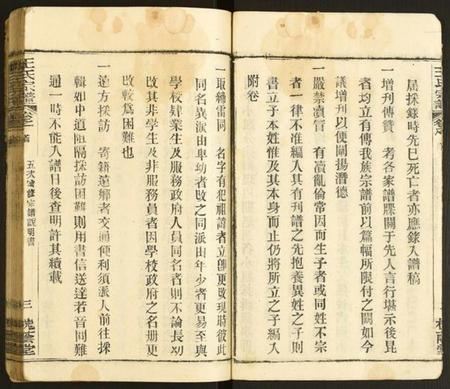 屆採錄時先已死亡者亦應錄入譜稿
一增刊傳贊　考各家譜牒關于先人言行堪示後昆
者均立有傳我族宗譜前以篇幅所限付之闕如今
議增刊以便闡揚潛德
一嚴禁瀆宗　有瀆亂倫常因而生子者或同姓不宗
者一律不准編入其有刊譜之先抱養異姓之子則
書立子本姓惟及其本身而止仍將所立之子編入
附卷
一取締雷同　名字有犯祖諱者立即更改現時彼此
同名異派由卑幼者改之同派由年少者更易至與
學校肄業生及服務政府人員同名者則不論長幼
改其非學生及非服務員者因學校政府之名冊更
改較為困難也
一遠方採訪　寄籍遠鄉者交通便利須派人前往採
輯如中道阻隔採訪困難則用書信送達若音問難
通一時不能入譜日後查明許其續載
王氏宗譜
卷之
五次續修宗譜說明書
三
槐蔭堂